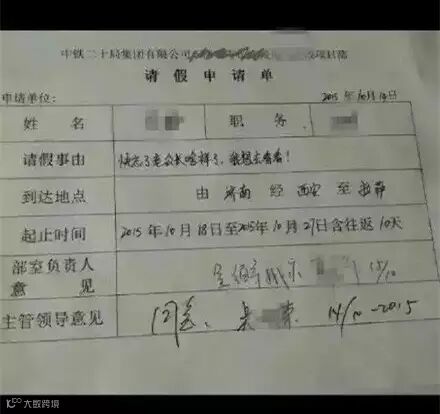 中铁二十局集团有限公司
请假申请单
申请单位: 2015年10月14日
姓名 职务
请假事由 快忘了老公长啥样了,我想去看看!
到达地点 由 济南 经 西安 至 拉萨
起止时间 2015年10月18日至2015年10月27日含往返10天
部室负责人意见 15/10
主管领导意见 同意. 14/10-2015
大数跨境